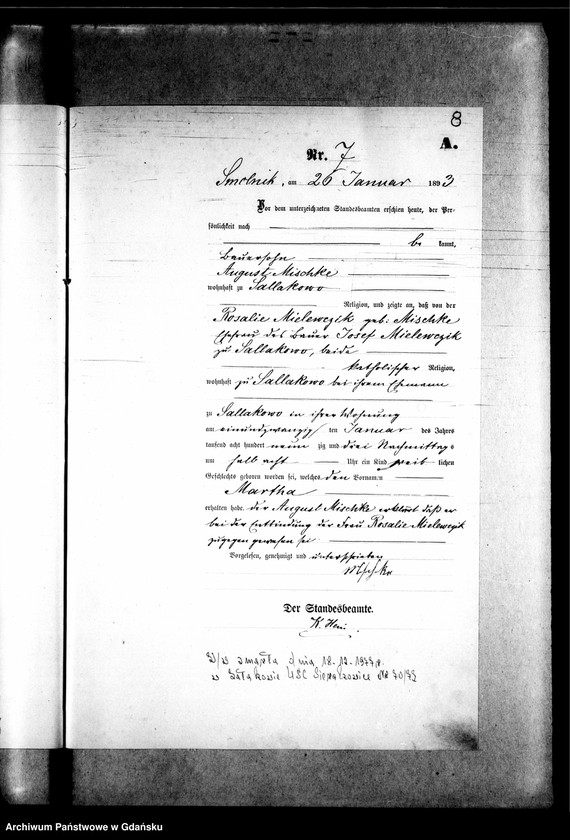 8
A.
Nr. 7
Smolnik, am 26 Januar 1893
Vor dem unterzeichneten Standesbeamten erschien heute, der Per-
sönlichkeit nach
be kannt,
Bauersohn
August Mischke
wohnhaft zu Sallakowo
Religion, und zeigte an, daß von der
Rosalie Mielewczik geb: Mischke
Ehefrau des Bauer Josef Mielewczik
zu Sallakowo, beide
katholischer Religion,
wohnhaft zu Sallakowo bei ihrem Ehemann
zu Sallakowo in ihrer Wohnung
am einundzwanzig ten Januar des Jahres
tausend acht hundert neun zig und drei Nachmittags
um halb acht Uhr ein Kind weib lichen
Geschlechts geboren worden sei, welches den Vornamen
Martha
erhalten habe. der August Mischke erklärt daß er
bei der Entbindung der Frau Rosalie Mielewczik
zugegen gewesen sei
Vorgelesen, genehmigt und unterschrieben
Mischke
Der Standesbeamte.
K.
W/w zmarła dnia 18-12-1977 r.
w Załakowie USC Sierakowice Nr 70/77
Archiwum Państwowe w Gdańsku